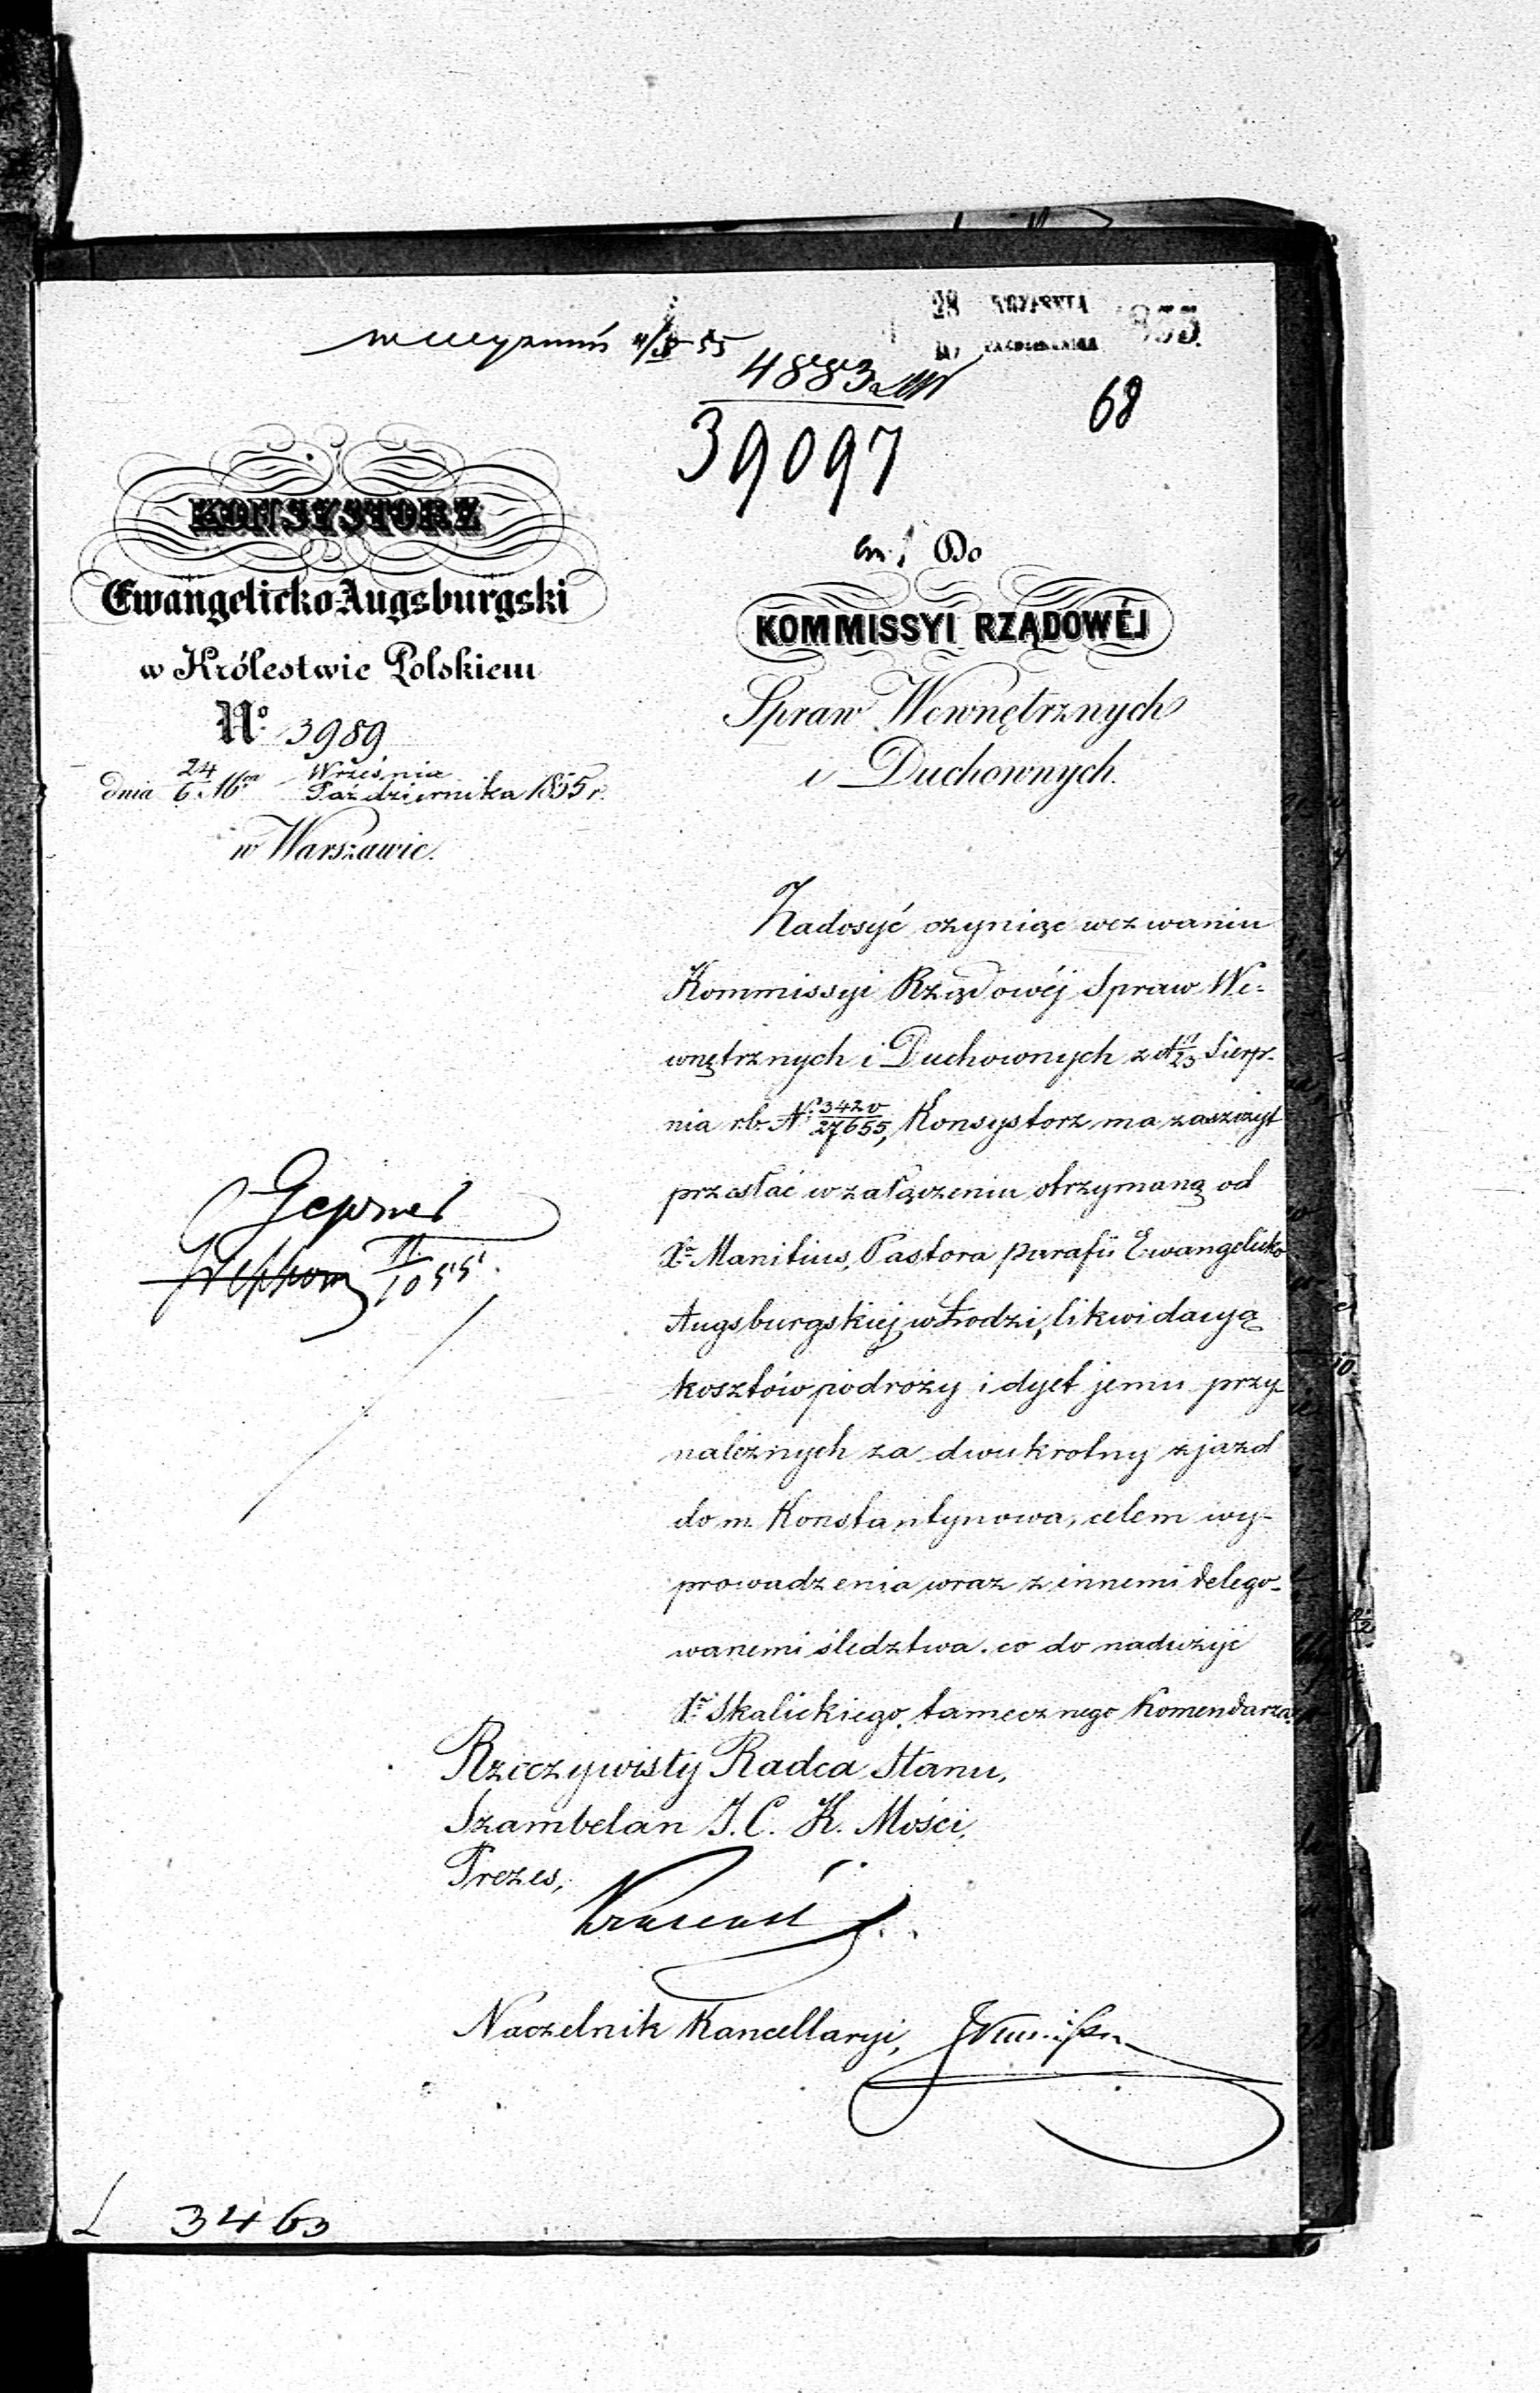 28 WRZEŚNIA
10 PAZDZIERNIKA 1855.
11/X 55
4883
39097
68
KONSYSTORZ
Ewangelicko-Augsburgski
w Królestwie Polskiem
No. 3989
dnia 24/6 Mca Września/Października 1855 r.
w Warszawie.
Do
KOMMISSYI RZĄDOWÉJ
Spraw Wewnętrznych
i Duchownych.
Zadosyć czyniąc wezwaniu
Kommissyi Rządowéj Spraw We-
wnętrznych i Duchownych z d. 11/23 Sierp-
nia r.b. No. 3420/27655, Konsystorz ma zaszczyt
przesłać w załączeniu otrzymaną od
Xa Manitius, Pastora parafii Ewangelicko
Augsburgskiej w Łodzi, likwidacyą
kosztów podroży i dyet jemu przy-
należnych za dwukrotny zjazd
do m. Konstantynowa, celem wy-
prowadzenia wraz z innemi delego-
wanemi śledztwa co do nadużyć
Xa Skalickiego, tamecznego Komendarza.
Gepner
11/10 55
Rzeczywisty Radca Stanu,
Szambelan J. C. K. Mości,
Prezes,
Naczelnik Kancellaryi,
L 3463